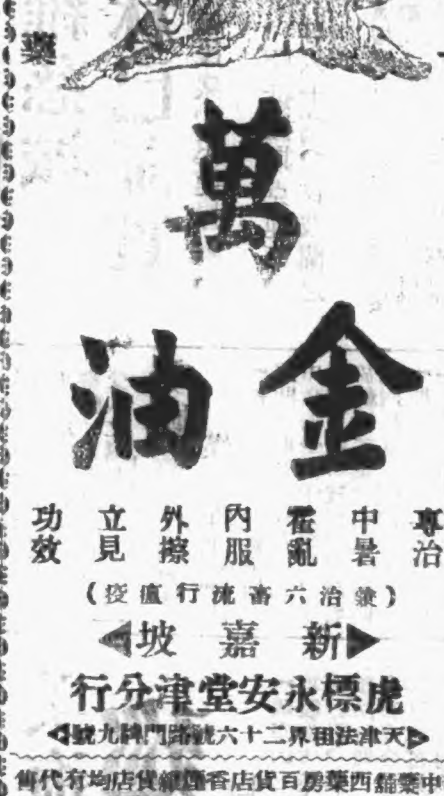 藥
萬
金油
專治
中暑
霍亂
內服
外擦
立見
功效
(兼治六畜流行瘟疫)
▶新嘉坡◀
虎標永安堂津分行
▶天津法租界二十六號路門牌九號◀
中藥舖西藥房百貨店香煙雜貨店均有代售